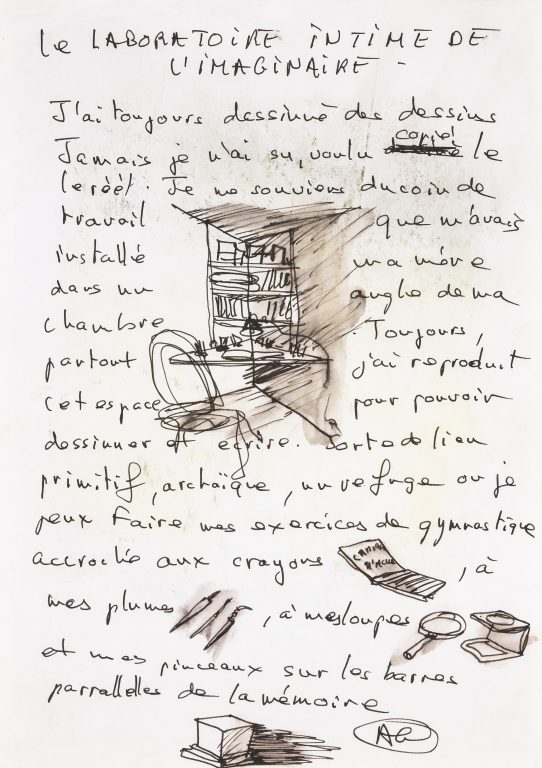 le LABORATOIRE INTIME DE
L'IMAGINAIRE -
J'ai toujours dessinné des dessins
Jamais je n'ai su, voulu copié le
le réèt. Je me souviens du coin de
travail que m'avais
installé ma mère
dans un angle de ma
chambre. Toujours,
partout j'ai reproduit
cet espace pour pouvoir
dessinner et écrire. Sorte de lieu
primitif, archaïque, un refuge ou je
peux faire mes exercices de gymnastique
accrochée aux crayons, à
mes plumes, à mes loupes
et mes pinceaux sur les barres
parrallelles de la mémoire
AG